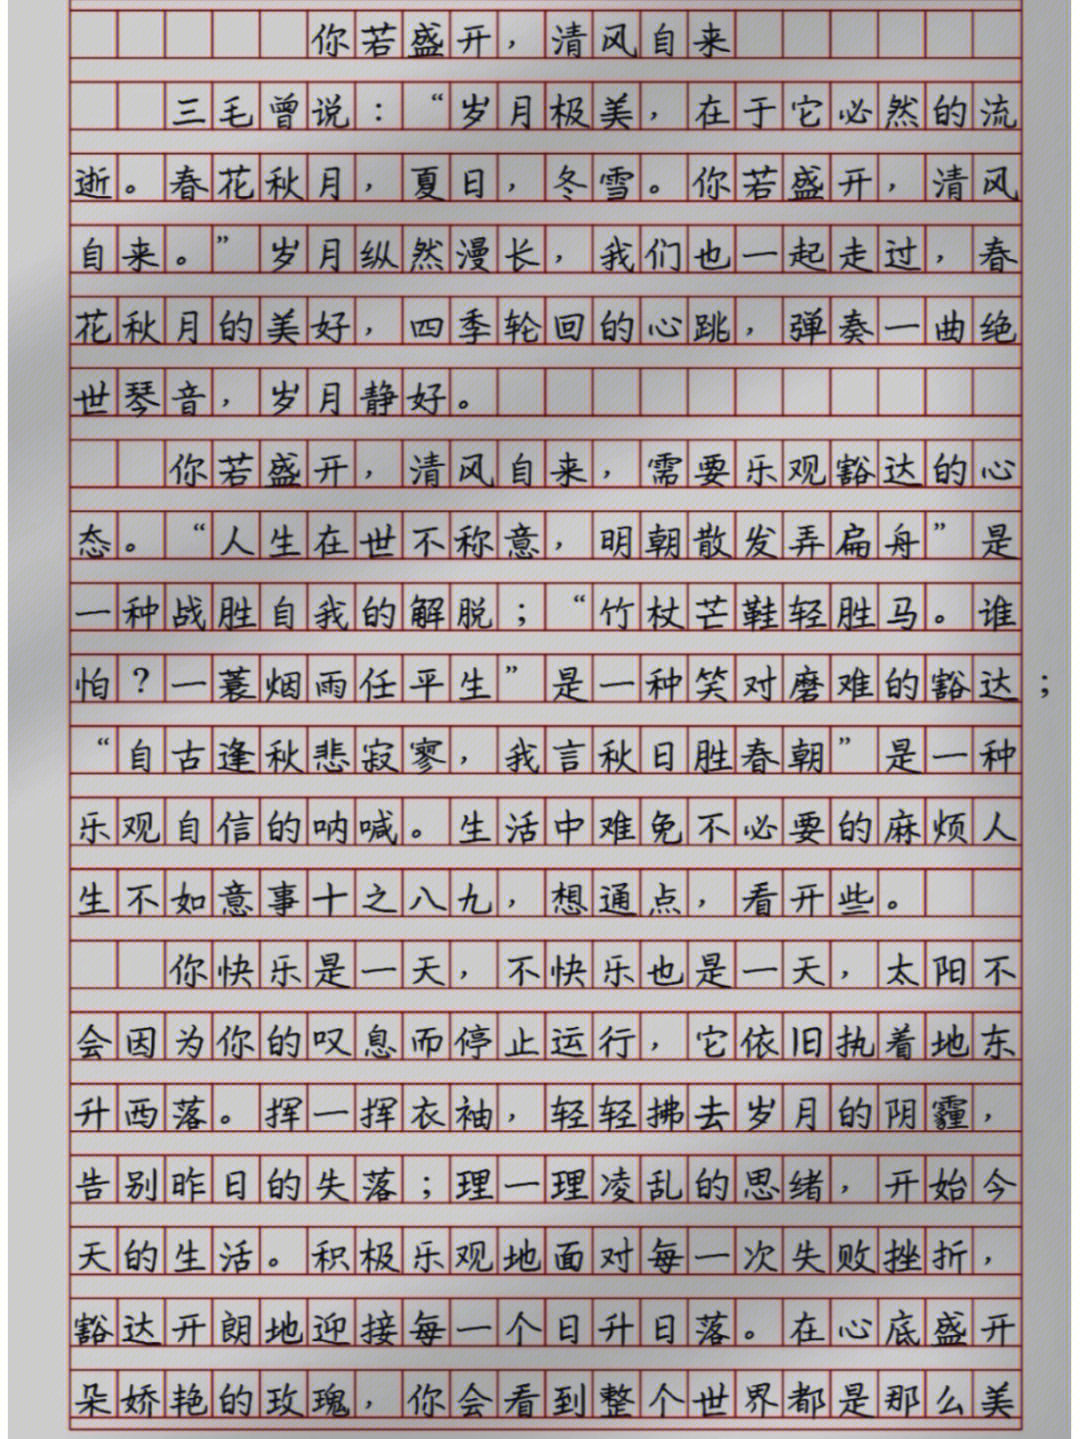 你若盛开，清风自来
三毛曾说：“岁月极美，在于它必然的流
逝。春花秋月，夏日，冬雪。你若盛开，清风
自来。”岁月纵然漫长，我们也一起走过，春
花秋月的美好，四季轮回的心跳，弹奏一曲绝
世琴音，岁月静好。
你若盛开，清风自来，需要乐观豁达的心
态。“人生在世不称意，明朝散发弄扁舟”是
一种战胜自我的解脱；“竹杖芒鞋轻胜马。谁
怕？一蓑烟雨任平生”是一种笑对磨难的豁达；
“自古逢秋悲寂寥，我言秋日胜春朝”是一种
乐观自信的呐喊。生活中难免不必要的麻烦人
生不如意事十之八九，想通点，看开些。
你快乐是一天，不快乐也是一天，太阳不
会因为你的叹息而停止运行，它依旧执着地东
升西落。挥一挥衣袖，轻轻拂去岁月的阴霾，
告别昨日的失落；理一理凌乱的思绪，开始今
天的生活。积极乐观地面对每一次失败挫折，
豁达开朗地迎接每一个日升日落。在心底盛开
朵娇艳的玫瑰，你会看到整个世界都是那么美